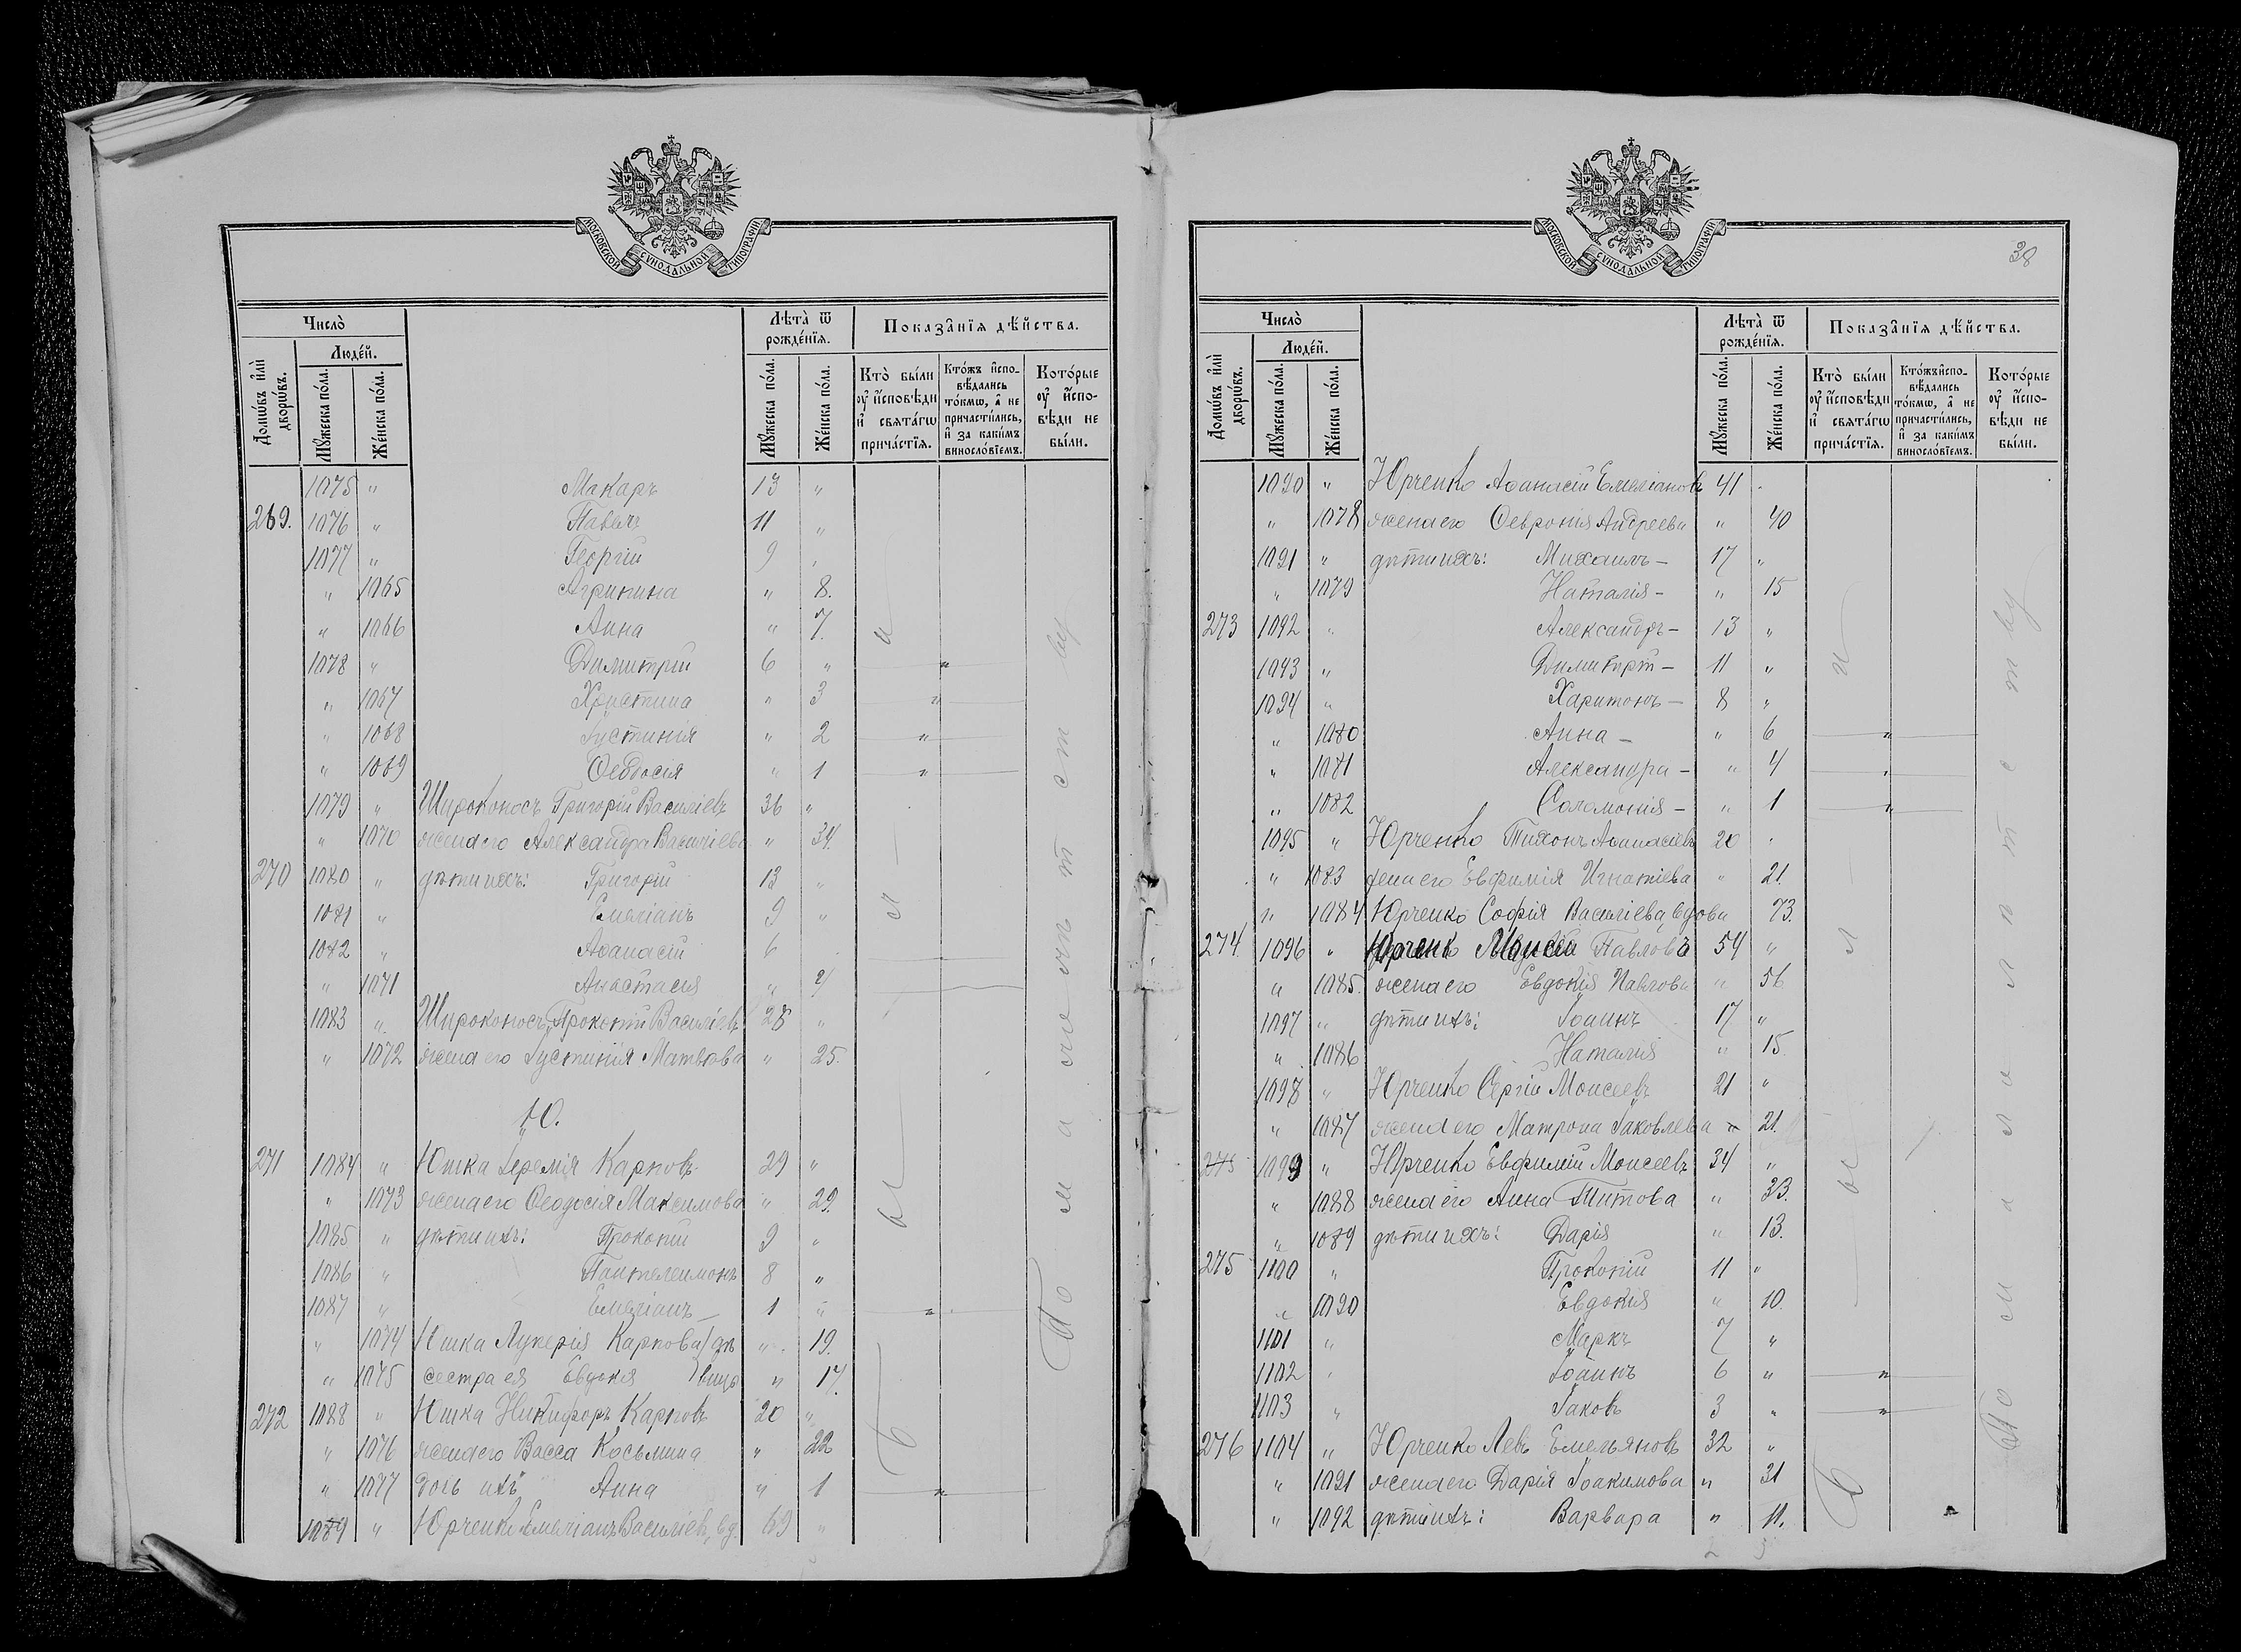 МОСКОВСКОЙ СѴНОДАЛЬНОЙ ТИПОГРАФІИ
Число̀
Людéй.
Домѡ́въ и҆лѝ дворѡ́въ.
Мꙋ́жеска по́ла.
Же́нска по́ла.
Лѣ́та ѿ рожде́нїѧ.
Мꙋ́жеска по́ла.
Же́нска по́ла.
Показа̑нїѧ дѣ́йства.
Кто̀ бы́ли ᲂу҆ и҆сповѣ́ди и҆ свѧта́гѡ прича́стїѧ.
Кто́жъ и҆спо-вѣ́дались то́кмѡ, а҆ не причасти́лись, и҆ за каки́мъ винословїемъ.
Кото́рые ᲂу҆ и҆спо-вѣ́ди не бы́ли.
1075 " Макаръ 13 "
269. 1076 " Павелъ 11 "
1077 " Георгій 9 "
" 1065 Агрипина " 8.
" 1066 Анна " 7.
1078 " Димитрій 6 " "
" 1067 Христина " 3 "
" 1068 Іустинія " 2 "
" 1069 Ѳеодосія " 1 "
1079 " Широконосъ Григорій Василіевъ 36 "
" 1070 жена его Александра Василіева " 34.
270 1080 " дѣти ихъ: Григорій 13 "
1081 " Емеліанъ 9 "
1082 " Аѳанасій 6
" 1071 Анастасія " 4
1083 " Широконосъ Прокопій Василіевъ 28 "
" 1072 жена его Іустинія Матѳѣова " 25.
Ю.
271 1084 " Юшка Іеремія Карповъ 29 "
" 1073 жена его Ѳеодосія Максимова " 29.
1085 " дѣти ихъ: Прокопій 9 "
1086 " Пантелеимонъ 8 "
1087 " Емеліанъ 1 " "
" 1074 Юшка Лукерія Карпова дѣ " 19.
" 1075 сестра ея Евдокія вица " 17.
272 1088 " Юшка Никифоръ Карповъ 20 "
" 1076 жена его Васса Косьмина " 22
" 1077 дочь ихъ Анна " 1 "
1089 " Юрченко Емеліанъ Василіевъ, вд. 69 "
Были
По малолѣтству
МОСКОВСКОЙ СѴНОДАЛЬНОЙ ТИПОГРАФІИ
38
Число̀
Людéй.
Домѡ́въ и҆лѝ дворѡ́въ.
Мꙋ́жеска по́ла.
Же́нска по́ла.
Лѣ́та ѿ рожде́нїѧ.
Мꙋ́жеска по́ла.
Же́нска по́ла.
Показа̑нїѧ дѣ́йства.
Кто̀ бы́ли ᲂу҆ и҆сповѣ́ди и҆ свѧта́гѡ прича́стїѧ.
Кто́жъ и҆спо-вѣ́дались то́кмѡ, а҆ не причасти́лись, и҆ за каки́мъ винословїемъ.
Кото́рые ᲂу҆ и҆спо-вѣ́ди не бы́ли.
1090 " Юрченко Аѳанасій Емеліановъ 41
" 1078 жена его Ѳевронія Андреева " 40
1091 " дѣти ихъ: Михаилъ - 17 "
" 1079 Наталія - " 15
273 1092 " Александръ - 13 "
1093 " Димитрій - 11 "
1094 " Харитонъ - 8 "
" 1080 Анна - " 6 "
" 1081 Александра - " 4 "
" 1082 Соломонія - " 1 "
1095 " Юрченко Тихонъ Аѳанасіевъ 20
" 1083 жена его Евфимія Игнатіева " 21.
" 1084 Юрченко Софія Василіева, вдова 73.
274. 1096 " Юрченко Моисей Павловъ 54 "
" 1085. жена его Евдокія Павлова " 56
1097 " дѣти ихъ: Іоаннъ 17 "
" 1086 Наталія " 15.
1098 " Юрченко Сергій Моисеевъ 21 "
" 1087 жена его Матрона Іаковлева " 21.
275 1099 " Юрченко Евфимій Моисеевъ 34 "
" 1088 жена его Анна Титова " 33.
" 1089 дѣти ихъ: Дарія " 13.
275 1100 " Прокопій 11 "
" 1090 Евдокія " 10.
1101 " Маркъ 7 "
1102 " Іоаннъ 6 " "
1103 " Іаковъ 3 " "
276 1104 " Юрченко Левъ Емельяновъ 32 "
" 1091 жена его Дарія Іоакимова " 31
" 1092 дѣти ихъ: Варвара " 11.
Были
По малолѣтству